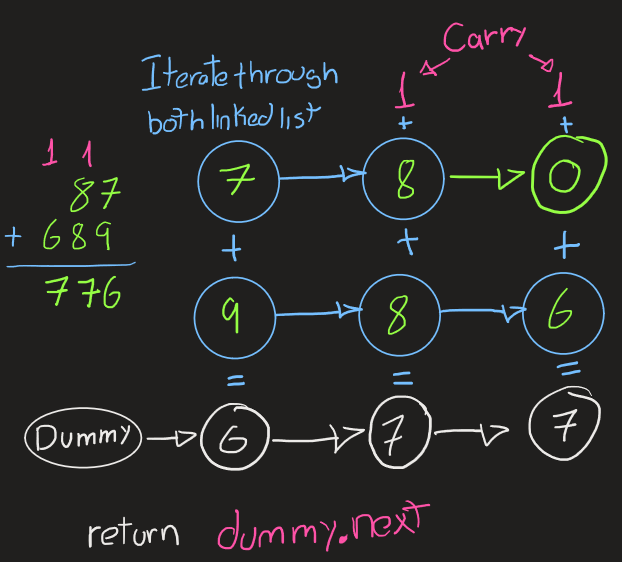 Carry
Iterate through
both linked list
1 1
+ +
1 1
87
+ 689
776
7 8 0
+ + +
9 8 6
= = =
Dummy 6 7 7
return dummy.next